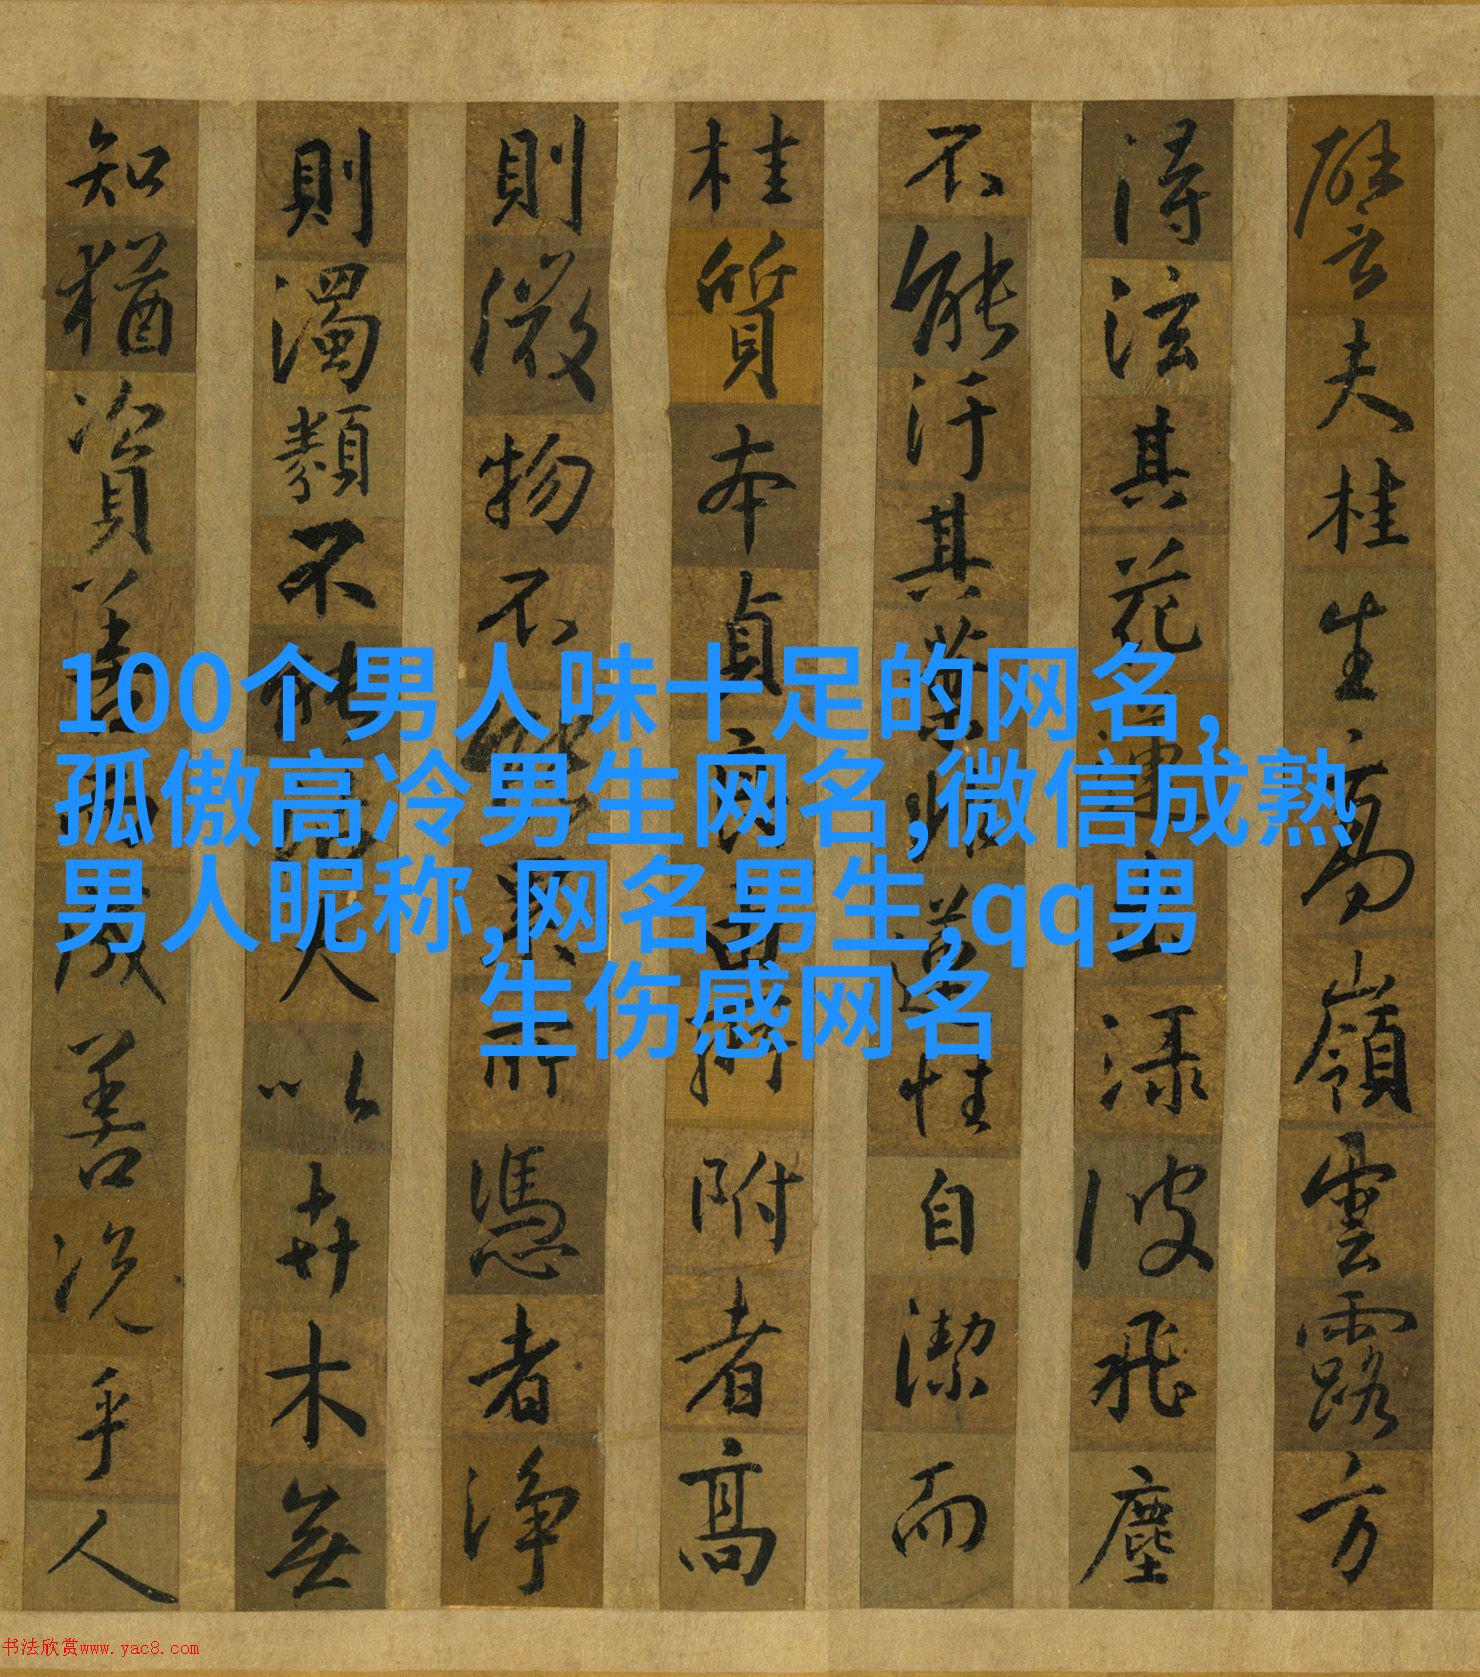 譬夫桂生高嶺雲露方
得泫其花蓮出渌波飛塵
不能汙其葉非蓮性自潔而
桂質本貞良由所附者高
則微物不能累所憑者淨
則濁類不能夫以卉木無
知猶資善成善況乎人
100个男人味十足的网名,
孤傲高冷男生网名,微信成熟
男人昵称,网名男生,qq男
生伤感网名
书法欣赏www.yac8.com